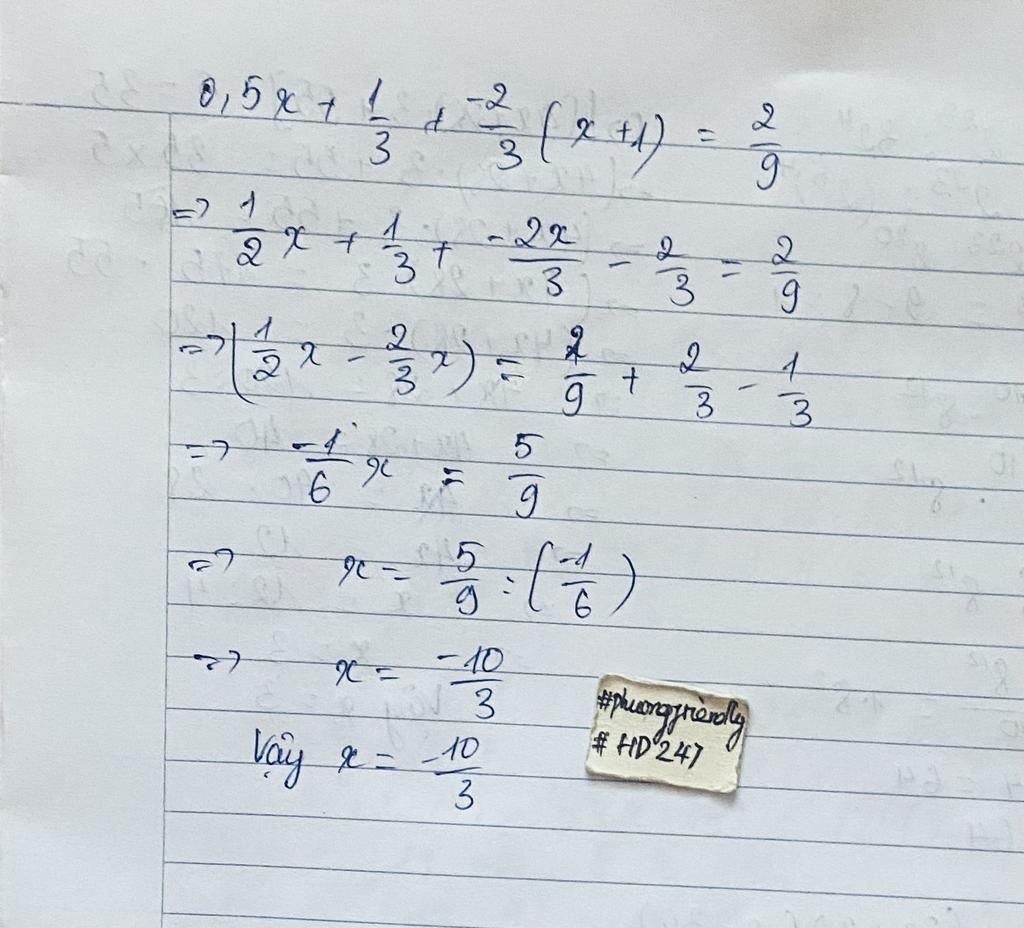 0,5x + 1/3 + -2/3 (x+1) = 2/9
=> 1/2 x + 1/3 + -2x/3 - 2/3 = 2/9
=> (1/2 x - 2/3 x) = 2/9 + 2/3 - 1/3
=> -1/6 x = 5/9
=> x = 5/9 : (-1/6)
=> x = -10/3
Vậy x = -10/3
#phuongfriendly
#HD247